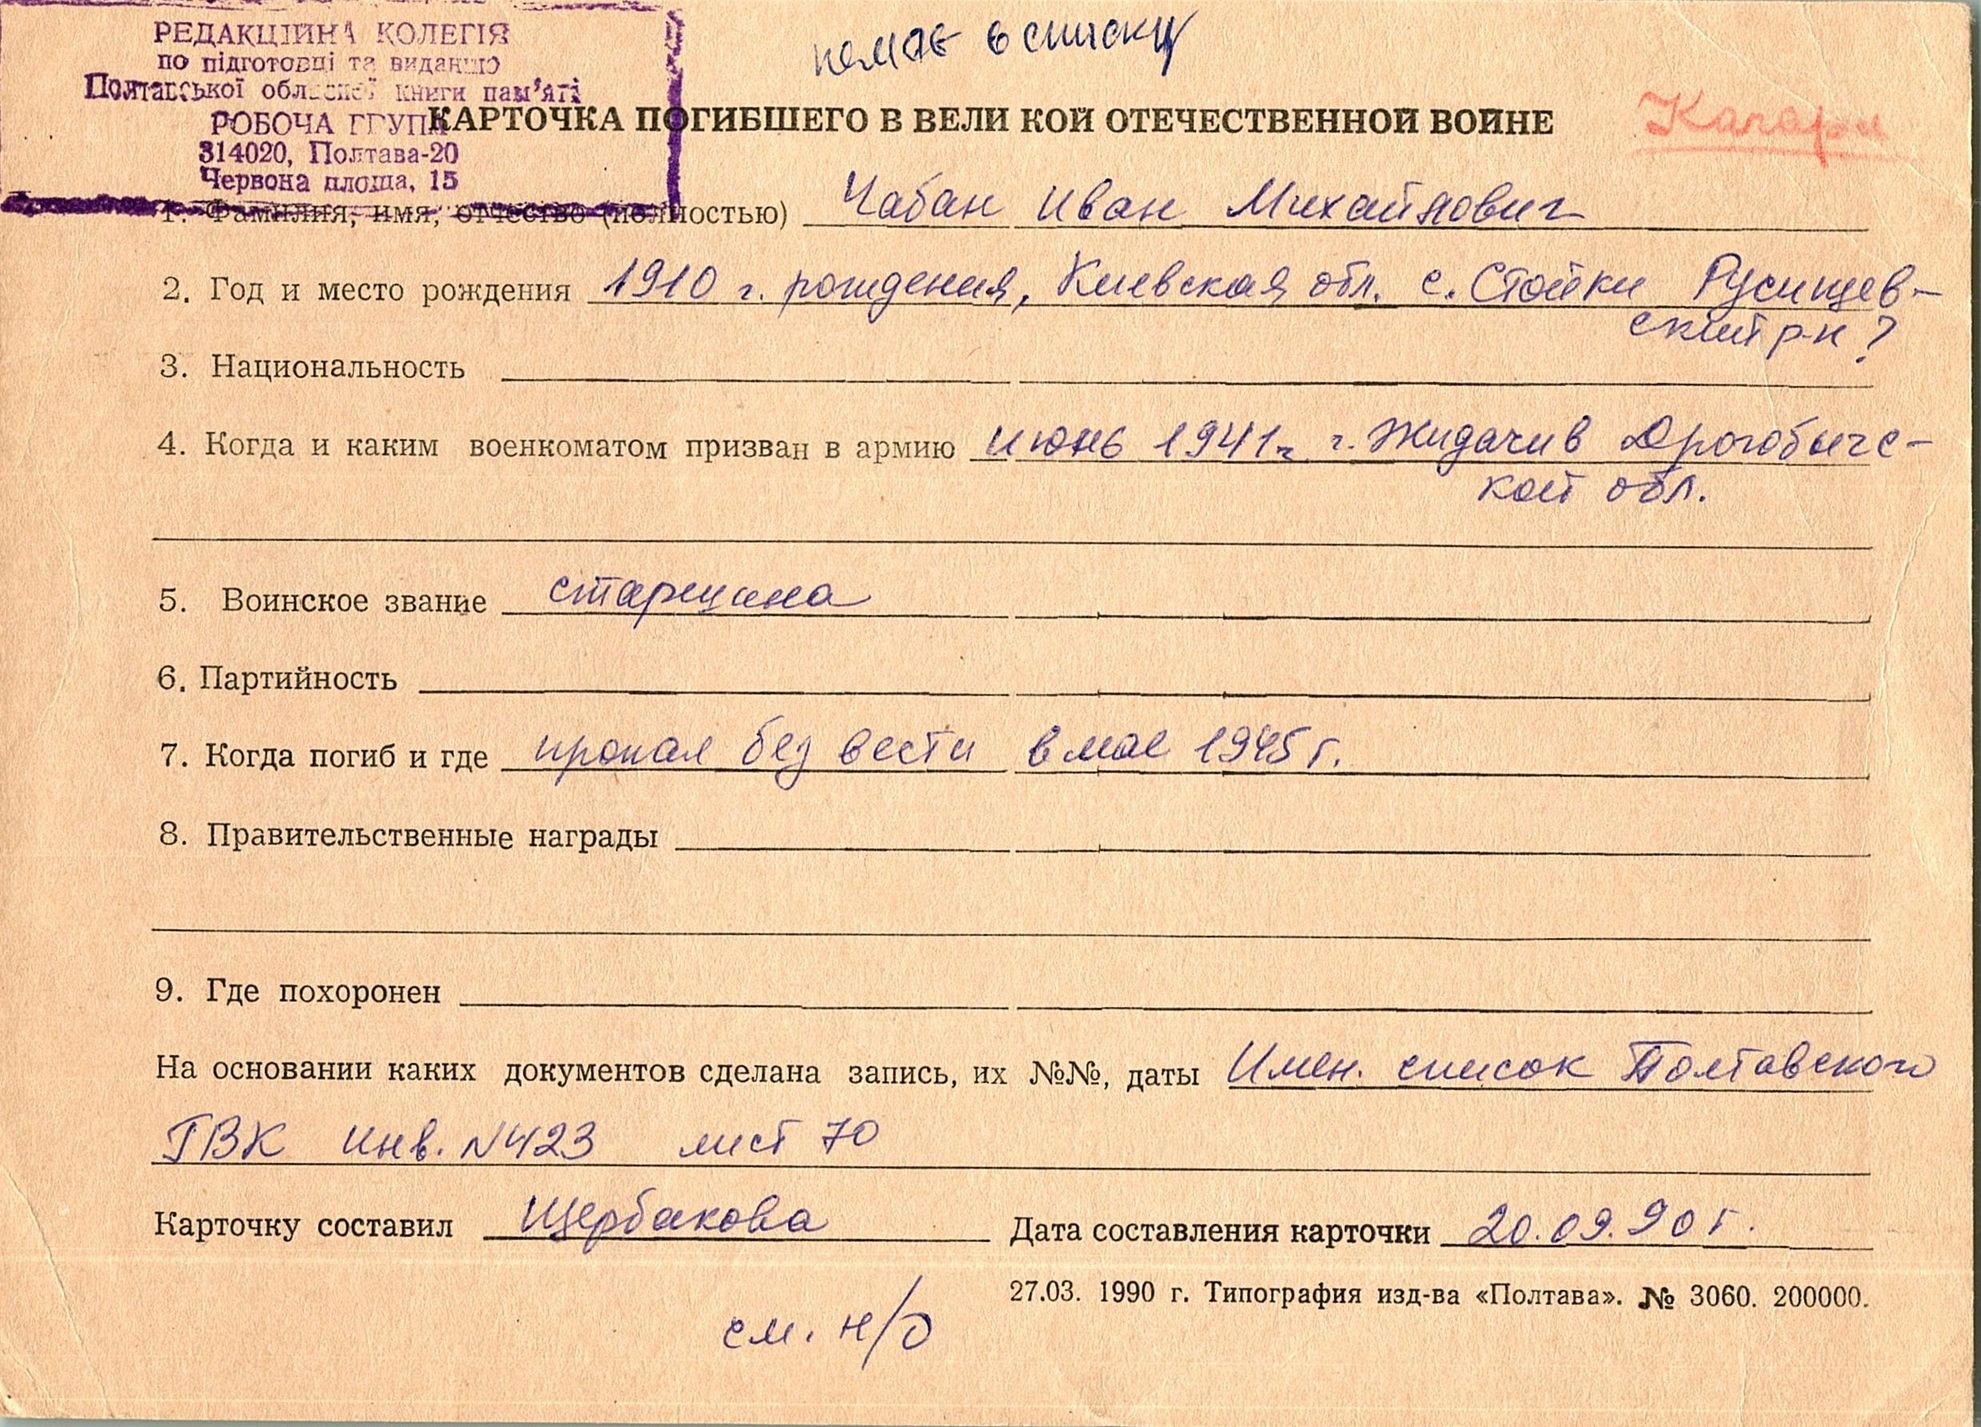 РЕДАКЦІЙНА КОЛЕГІЯ
по підготовці та виданню
Полтавської обласної книги пам'яті
РОБОЧА ГРУПА
314020, Полтава-20
Червона площа, 15
немає в списку
КАРТОЧКА ПОГИБШЕГО В ВЕЛИ КОЙ ОТЕЧЕСТВЕННОЙ ВОЙНЕ
1. Фамилия, имя, отчество (полностью) Чабан Иван Михайлович
2. Год и место рождения 1910 г. рождения, Киевская обл. с. Стойки Русищев-
ский р-н?
3. Национальность
4. Когда и каким военкоматом призван в армию июнь 1941г. г. Жидачив Дрогобычс-
кой обл.
5. Воинское звание старшина
6. Партийность
7. Когда погиб и где пропал без вести в мае 1945 г.
8. Правительственные награды
9. Где похоронен
На основании каких документов сделана запись, их №№, даты Имен. список Полтавского
ГВК инв. N423 лист 70
Карточку составил Щербакова Дата составления карточки 20.09.90 г.
27.03. 1990 г. Типография изд-ва «Полтава». № 3060. 200000.
см. н/о